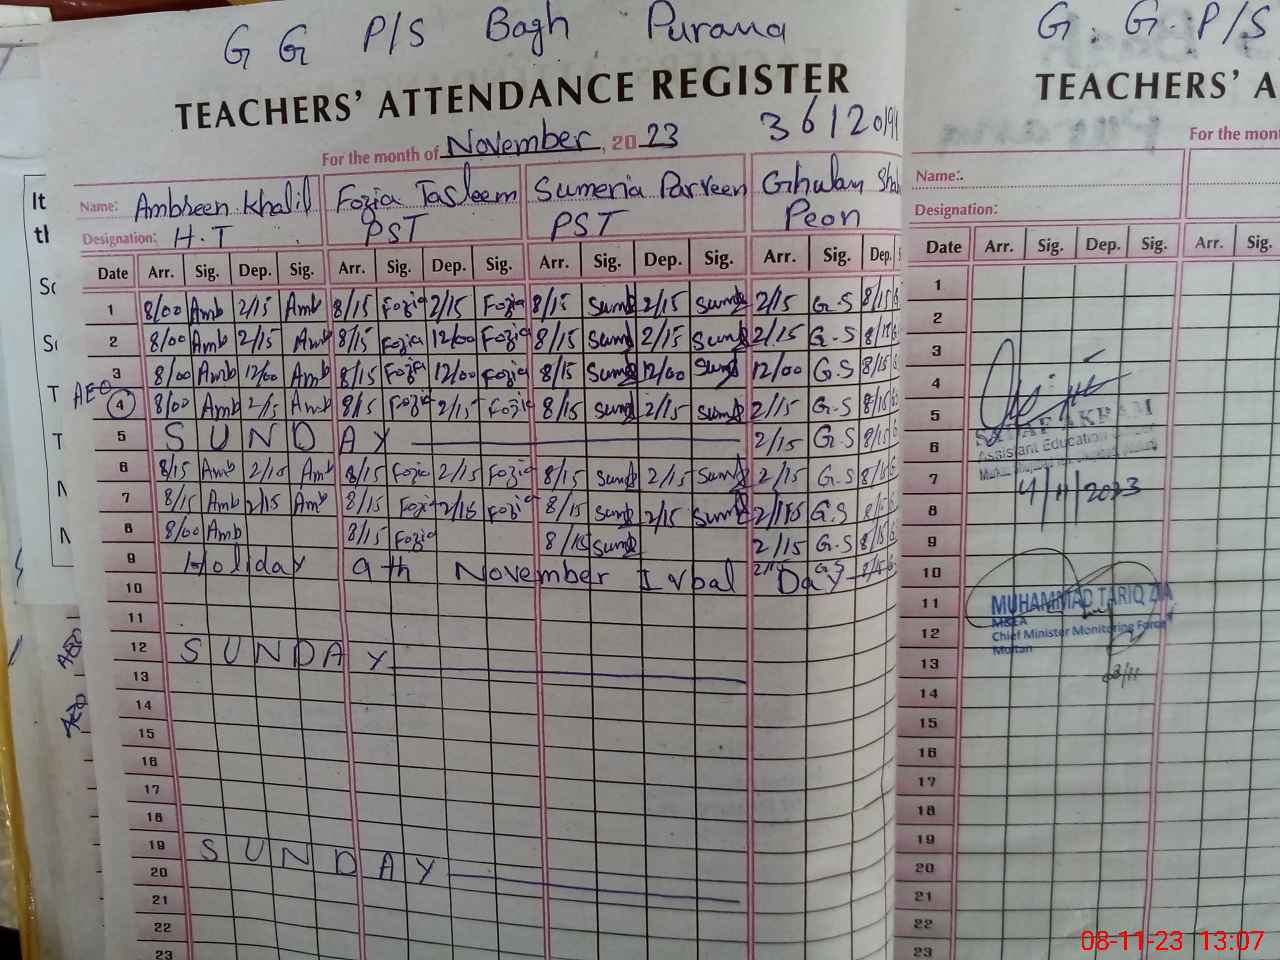 G G P/S Bagh Purana
TEACHERS' ATTENDANCE REGISTER
For the month of November, 2023
Name: Ambreen Khalil Fozia Tasleem Sumeria Parveen Ghulam
Designation: H.T PST PST Peon
Date Arr. Sig. Dep. Sig. Arr. Sig. Dep. Sig. Arr. Sig. Dep. Sig. Arr. Sig. Dep.
1 8/00 Amb 2/15 Amb 8/15 Fozia 2/15 Fozia 8/15 Sum 2/15 Sum 2/15 G.S 8/15
2 8/00 Amb 2/15 Amb 8/15 Fozia 12/00 Fozia 8/15 Sum 2/15 Sum 2/15 G.S 8/15
3 8/00 Amb 12/00 Amb 8/15 Fozia 12/00 Fozia 8/15 Sum 12/00 Sum 12/00 G.S 8/15
AEO 4 8/00 Amb 2/15 Amb 8/15 Fozia 2/15 Fozia 8/15 Sum 2/15 Sum 2/15 G.S 8/15
5 SUNDAY 2/15 G.S 8/15
6 8/15 Amb 2/15 Amb 8/15 Fozia 2/15 Fozia 8/15 Sum 2/15 Sum 2/15 G.S 8/15
7 8/15 Amb 2/15 Amb 8/15 Fozia 2/15 Fozia 8/15 Sum 2/15 Sum 2/15 G.S
8 8/00 Amb 8/15 Fozia 8/15 Sum 2/15 G.S 8/15
9 Holiday 9th November Iqbal Day
10
11
12 SUNDAY
13
14
15
16
17
18
19 SUNDAY
20
21
22
23
G. G. P/S
TEACHERS' A
For the mont
Name:
Designation:
Date Arr. Sig. Dep. Sig. Arr. Sig.
1
2
3
4
5
6
AKRAM
Assistant Education
7
4/11/2023
8
9
10
11
MUHAMMAD TARIQ ZIA
MEA
12
Chief Minister Monitoring Force
Multan
13
03/11
14
15
16
17
18
19
20
21
22
23
08-11-23 13:07